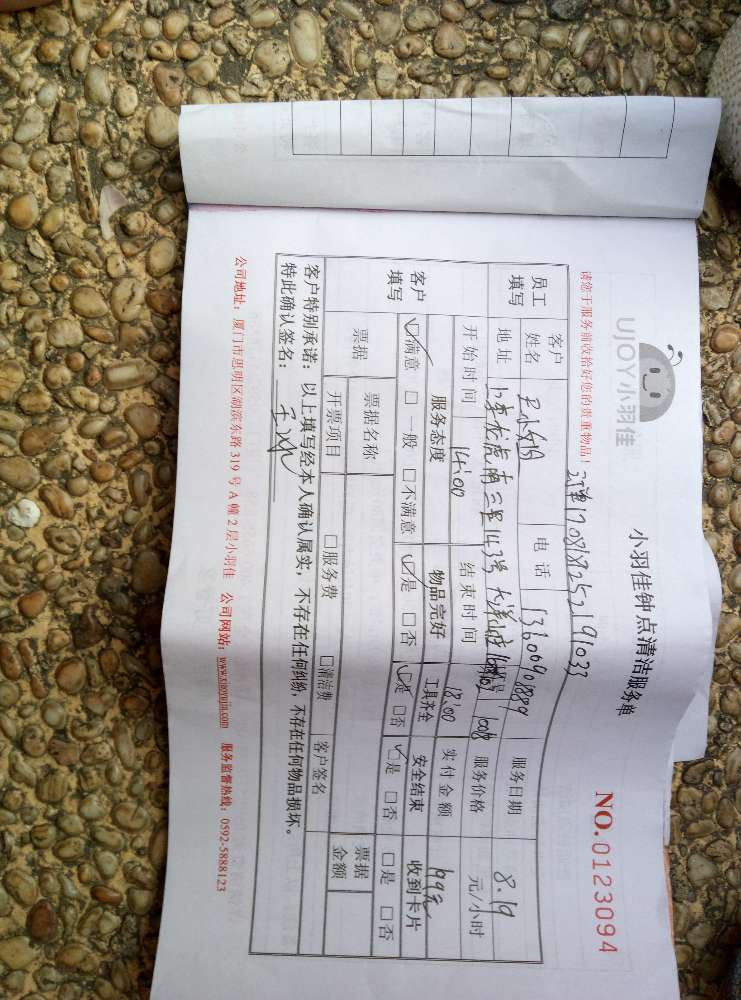 UJOY小羽佳
小羽佳钟点清洁服务单
NO.0123094
请您于服务前收拾好您的贵重物品！
员工填写 客户姓名 电话 服务日期 8.19
地址 服务价格 元/小时
开始时间 14:00 结束时间 18:00 实付金额
客户填写 服务态度 物品完好 工具齐全 安全结束 收到卡片
☑满意 □一般 □不满意 ☑是 □否 ☑是 □否 ☑是 □否 □是 □否
票据 票据名称 票据金额
开票项目 □服务费 □清洁费 客户签名
客户特别承诺：以上填写经本人确认属实，不存在任何纠纷，不存在任何物品损坏。
特此确认签名：
公司地址：厦门市思明区湖滨东路 319 号 A 幢 2 层小羽佳 公司网站：www.xiaoyujia.com 服务监督热线：0592-5888123